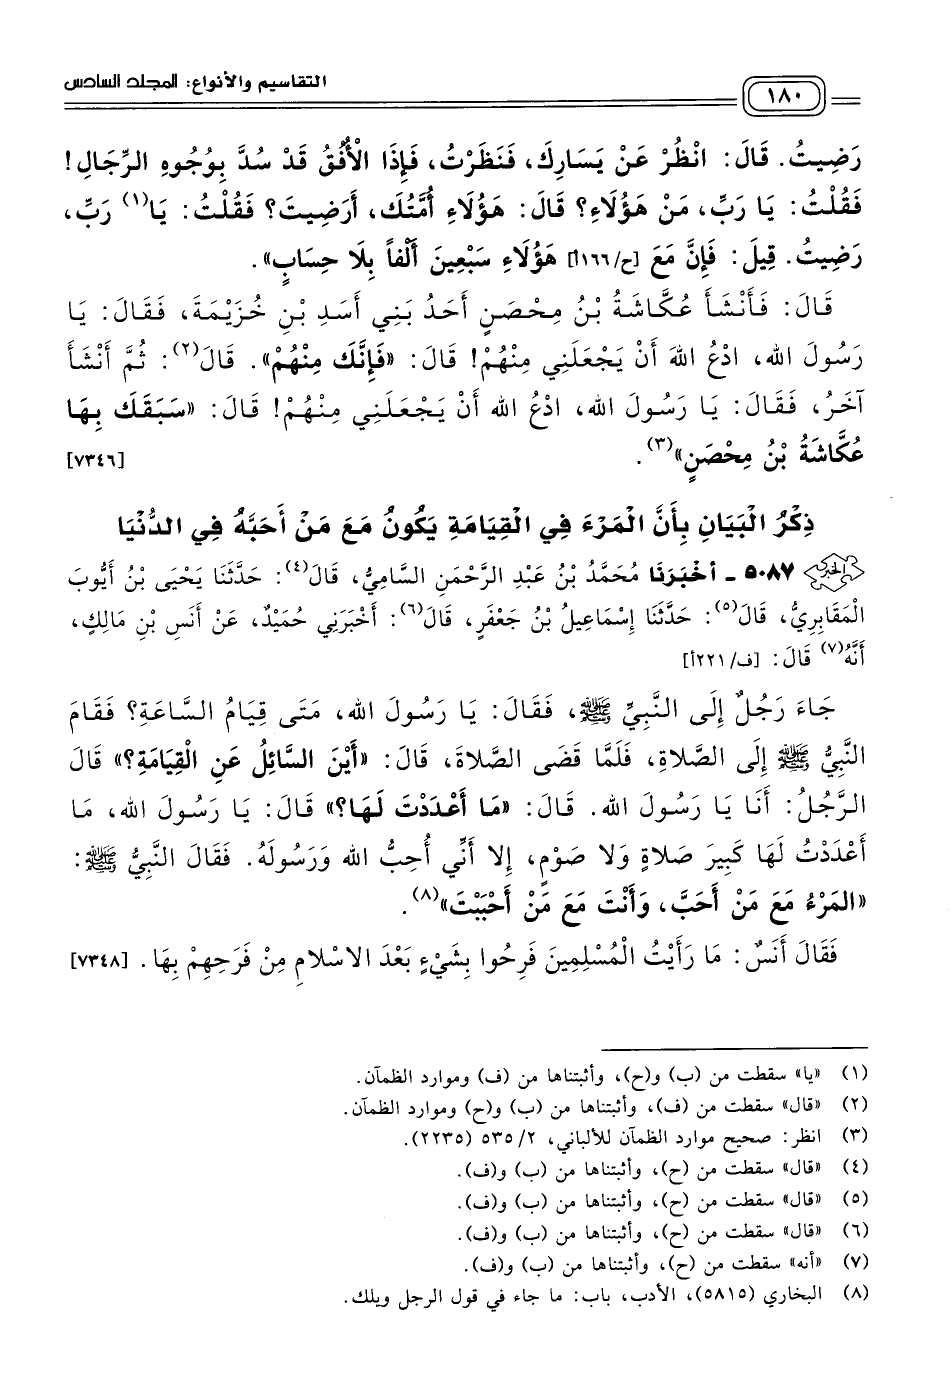 ١٨٠ التقاسيم والأنواع: المجلد السادس
رَضِيتُ. قَالَ: انْظُرْ عَنْ يَسَارِكَ، فَنَظَرْتُ، فَإِذَا الْأُفُقُ قَدْ سُدَّ بِوُجُوهِ الرِّجَالِ!
فَقُلْتُ: يَا رَبِّ، مَنْ هَؤُلَاءِ؟ قَالَ: هَؤُلَاءِ أُمَّتُكَ، أَرَضِيتَ؟ فَقُلْتُ: يَا(١) رَبِّ،
رَضِيتُ. قِيلَ: فَإِنَّ مَعَ [ح/١٦٦أ] هَؤُلَاءِ سَبْعِينَ أَلْفاً بِلَا حِسَابٍ».
قَالَ: فَأَنْشَأَ عُكَّاشَةُ بْنُ مِحْصَنٍ أَحَدُ بَنِي أَسَدِ بْنِ خُزَيْمَةَ، فَقَالَ: يَا
رَسُولَ اللهِ، ادْعُ اللهَ أَنْ يَجْعَلَنِي مِنْهُمْ! قَالَ: «فَإِنَّكَ مِنْهُمْ». قَالَ(٢): ثُمَّ أَنْشَأَ
آخَرُ، فَقَالَ: يَا رَسُولَ اللهِ، ادْعُ اللهَ أَنْ يَجْعَلَنِي مِنْهُمْ! قَالَ: «سَبَقَكَ بِهَا
عُكَّاشَةُ بْنُ مِحْصَنٍ»(٣). [٧٣٤٦]
ذِكْرُ الْبَيَانِ بِأَنَّ الْمَرْءَ فِي الْقِيَامَةِ يَكُونُ مَعَ مَنْ أَحَبَّهُ فِي الدُّنْيَا
٥٠٨٧ - أَخْبَرَنَا مُحَمَّدُ بْنُ عَبْدِ الرَّحْمَنِ السَّامِيُّ، قَالَ(٤): حَدَّثَنَا يَحْيَى بْنُ أَيُّوبَ
الْمَقَابِرِيُّ، قَالَ(٥): حَدَّثَنَا إِسْمَاعِيلُ بْنُ جَعْفَرٍ، قَالَ(٦): أَخْبَرَنِي حُمَيْدٌ، عَنْ أَنَسِ بْنِ مَالِكٍ،
أَنَّهُ(٧) قَالَ: [ف/٢٢١أ]
جَاءَ رَجُلٌ إِلَى النَّبِيِّ ﷺ، فَقَالَ: يَا رَسُولَ اللهِ، مَتَى قِيَامُ السَّاعَةِ؟ فَقَامَ
النَّبِيُّ ﷺ إِلَى الصَّلَاةِ، فَلَمَّا قَضَى الصَّلَاةَ، قَالَ: «أَيْنَ السَّائِلُ عَنِ الْقِيَامَةِ؟» قَالَ
الرَّجُلُ: أَنَا يَا رَسُولَ اللهِ. قَالَ: «مَا أَعْدَدْتَ لَهَا؟» قَالَ: يَا رَسُولَ اللهِ، مَا
أَعْدَدْتُ لَهَا كَبِيرَ صَلَاةٍ وَلَا صَوْمٍ، إِلا أَنِّي أُحِبُّ اللهَ وَرَسُولَهُ. فَقَالَ النَّبِيُّ ﷺ:
«الْمَرْءُ مَعَ مَنْ أَحَبَّ، وَأَنْتَ مَعَ مَنْ أَحْبَبْتَ»(٨).
فَقَالَ أَنَسٌ: مَا رَأَيْتُ الْمُسْلِمِينَ فَرِحُوا بِشَيْءٍ بَعْدَ الاسْلَامِ مِنْ فَرَحِهِمْ بِهَا. [٧٣٤٨]
(١) «يا» سقطت من (ب) و(ح)، وأثبتناها من (ف) وموارد الظمآن.
(٢) «قال» سقطت من (ف)، وأثبتناها من (ب) و(ح) وموارد الظمآن.
(٣) انظر: صحيح موارد الظمآن للألباني، ٢/ ٥٣٥ (٢٢٣٥).
(٤) «قال» سقطت من (ح)، وأثبتناها من (ب) و(ف).
(٥) «قال» سقطت من (ح)، وأثبتناها من (ب) و(ف).
(٦) «قال» سقطت من (ح)، وأثبتناها من (ب) و(ف).
(٧) «أنه» سقطت من (ح)، وأثبتناها من (ب) و(ف).
(٨) البخاري (٥٨١٥)، الأدب، باب: ما جاء في قول الرجل ويلك.